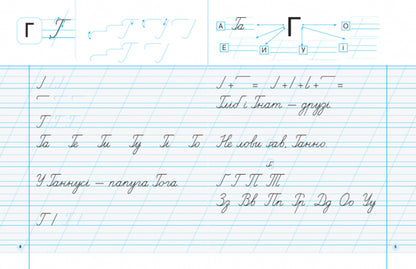 Г Г
А Га Г О
Е И У І
Г
Га Ге Ги Гу Гі Го
У Ганнусі — папуга Гога
Г
Гліб і Гнат — друзі
Не лови ґав, Ганно
Г Т П Т
Зз Вв Пп Гр Дд Оо Уу